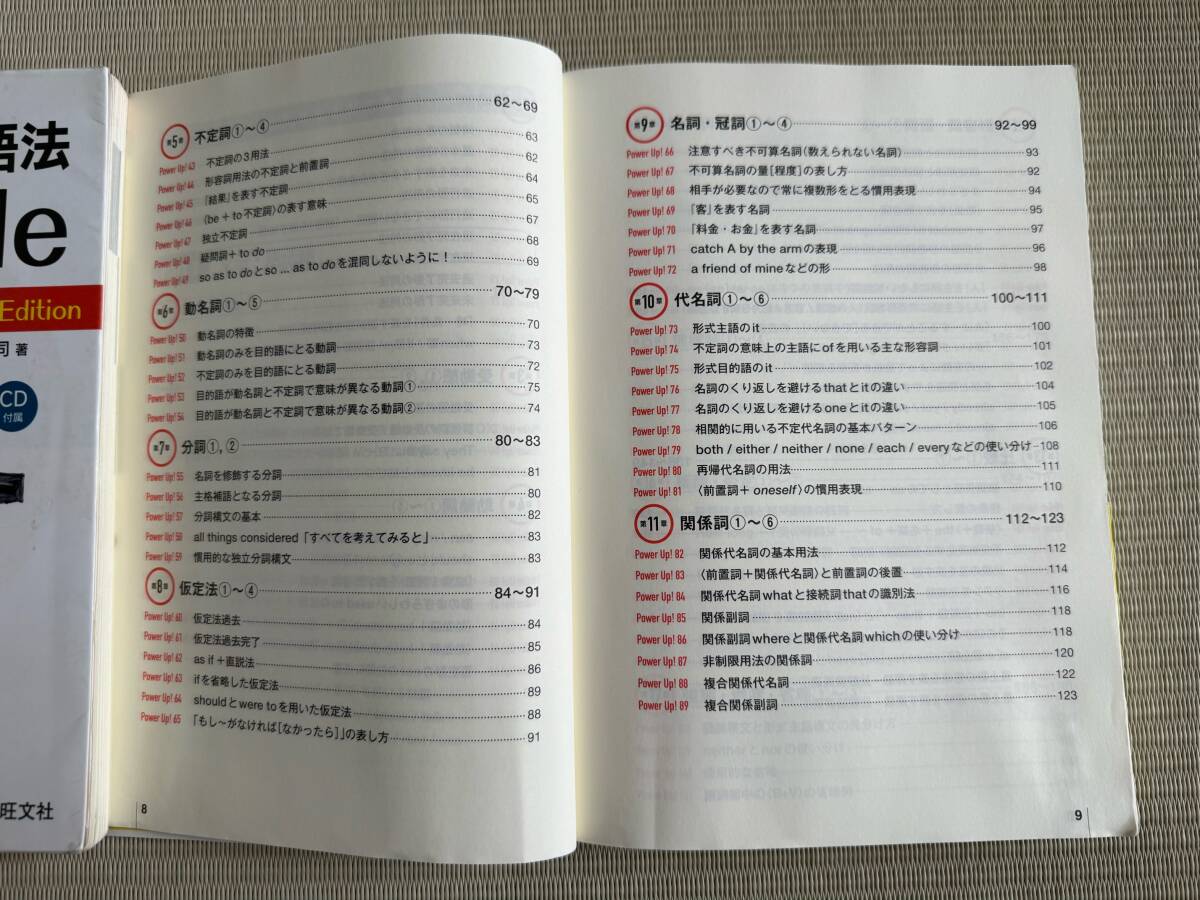 語法
le
Edition
司 著
CD
付属
旺文社
第5章 不定詞①～④ 62～69
Power Up! 43 不定詞の3用法 63
Power Up! 44 形容詞用法の不定詞と前置詞 62
Power Up! 45 『結果』を表す不定詞 64
Power Up! 46 〈be＋to不定詞〉の表す意味 65
Power Up! 47 独立不定詞 67
Power Up! 48 疑問詞＋to do 68
Power Up! 49 so as to doとso ... as to doを混同しないように！ 69
第6章 動名詞①～⑤ 70～79
Power Up! 50 動名詞の特徴 70
Power Up! 51 動名詞のみを目的語にとる動詞 73
Power Up! 52 不定詞のみを目的語にとる動詞 72
Power Up! 53 目的語が動名詞と不定詞で意味が異なる動詞① 75
Power Up! 54 目的語が動名詞と不定詞で意味が異なる動詞② 74
第7章 分詞①,② 80～83
Power Up! 55 名詞を修飾する分詞 81
Power Up! 56 主格補語となる分詞 80
Power Up! 57 分詞構文の基本 82
Power Up! 58 all things considered「すべてを考えてみると」 83
Power Up! 59 慣用的な独立分詞構文 83
第8章 仮定法①～④ 84～91
Power Up! 60 仮定法過去 84
Power Up! 61 仮定法過去完了 85
Power Up! 62 as if＋直説法 86
Power Up! 63 ifを省略した仮定法 89
Power Up! 64 shouldとwere toを用いた仮定法 88
Power Up! 65 「もし～がなければ［なかったら］」の表し方 91
8
第9章 名詞・冠詞①～④ 92～99
Power Up! 66 注意すべき不可算名詞（数えられない名詞） 93
Power Up! 67 不可算名詞の量［程度］の表し方 92
Power Up! 68 相手が必要なので常に複数形をとる慣用表現 94
Power Up! 69 『客』を表す名詞 95
Power Up! 70 『料金・お金』を表す名詞 97
Power Up! 71 catch A by the armの表現 96
Power Up! 72 a friend of mineなどの形 98
第10章 代名詞①～⑥ 100～111
Power Up! 73 形式主語のit 100
Power Up! 74 不定詞の意味上の主語にofを用いる主な形容詞 101
Power Up! 75 形式目的語のit 102
Power Up! 76 名詞のくり返しを避けるthatとitの違い 104
Power Up! 77 名詞のくり返しを避けるoneとitの違い 105
Power Up! 78 相関的に用いる不定代名詞の基本パターン 106
Power Up! 79 both / either / neither / none / each / everyなどの使い分け 108
Power Up! 80 再帰代名詞の用法 111
Power Up! 81 〈前置詞＋oneself〉の慣用表現 110
第11章 関係詞①～⑥ 112～123
Power Up! 82 関係代名詞の基本用法 112
Power Up! 83 〈前置詞＋関係代名詞〉と前置詞の後置 114
Power Up! 84 関係代名詞whatと接続詞thatの識別法 116
Power Up! 85 関係副詞 118
Power Up! 86 関係副詞whereと関係代名詞whichの使い分け 118
Power Up! 87 非制限用法の関係詞 120
Power Up! 88 複合関係代名詞 122
Power Up! 89 複合関係副詞 123
9